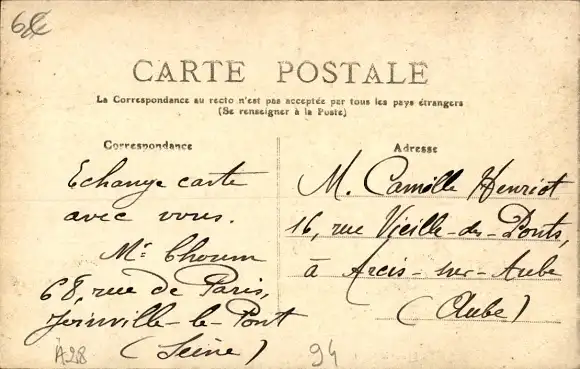 6€
CARTE POSTALE
La Correspondance au recto n'est pas acceptée par tous les pays étrangers
(Se renseigner à la Poste)
Correspondance
Echange carte
avec vous.
Mr Choum
68, rue de Paris,
Joinville-le-Pont
(Seine)
A28
Adresse
M. Camille Henriot
16, rue Vieille-des-Ponts,
à Arcis-sur-Aube
(Aube)
94